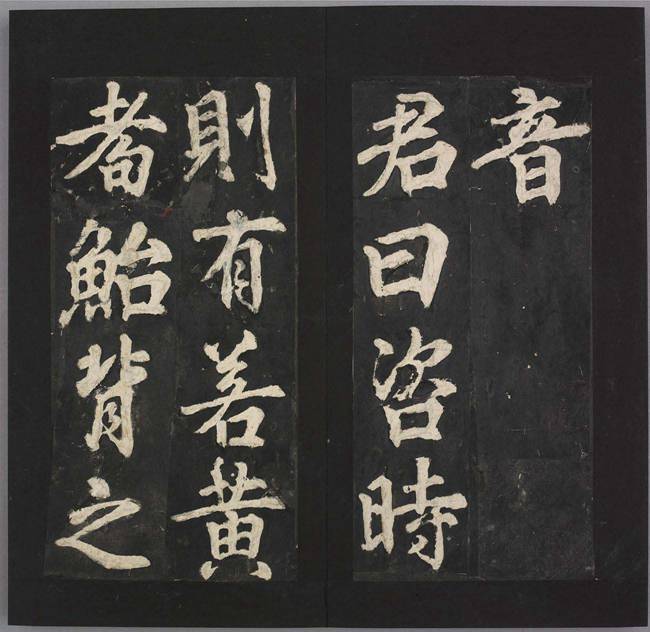 音
君曰咨時
則有若黃
耇鮐背之